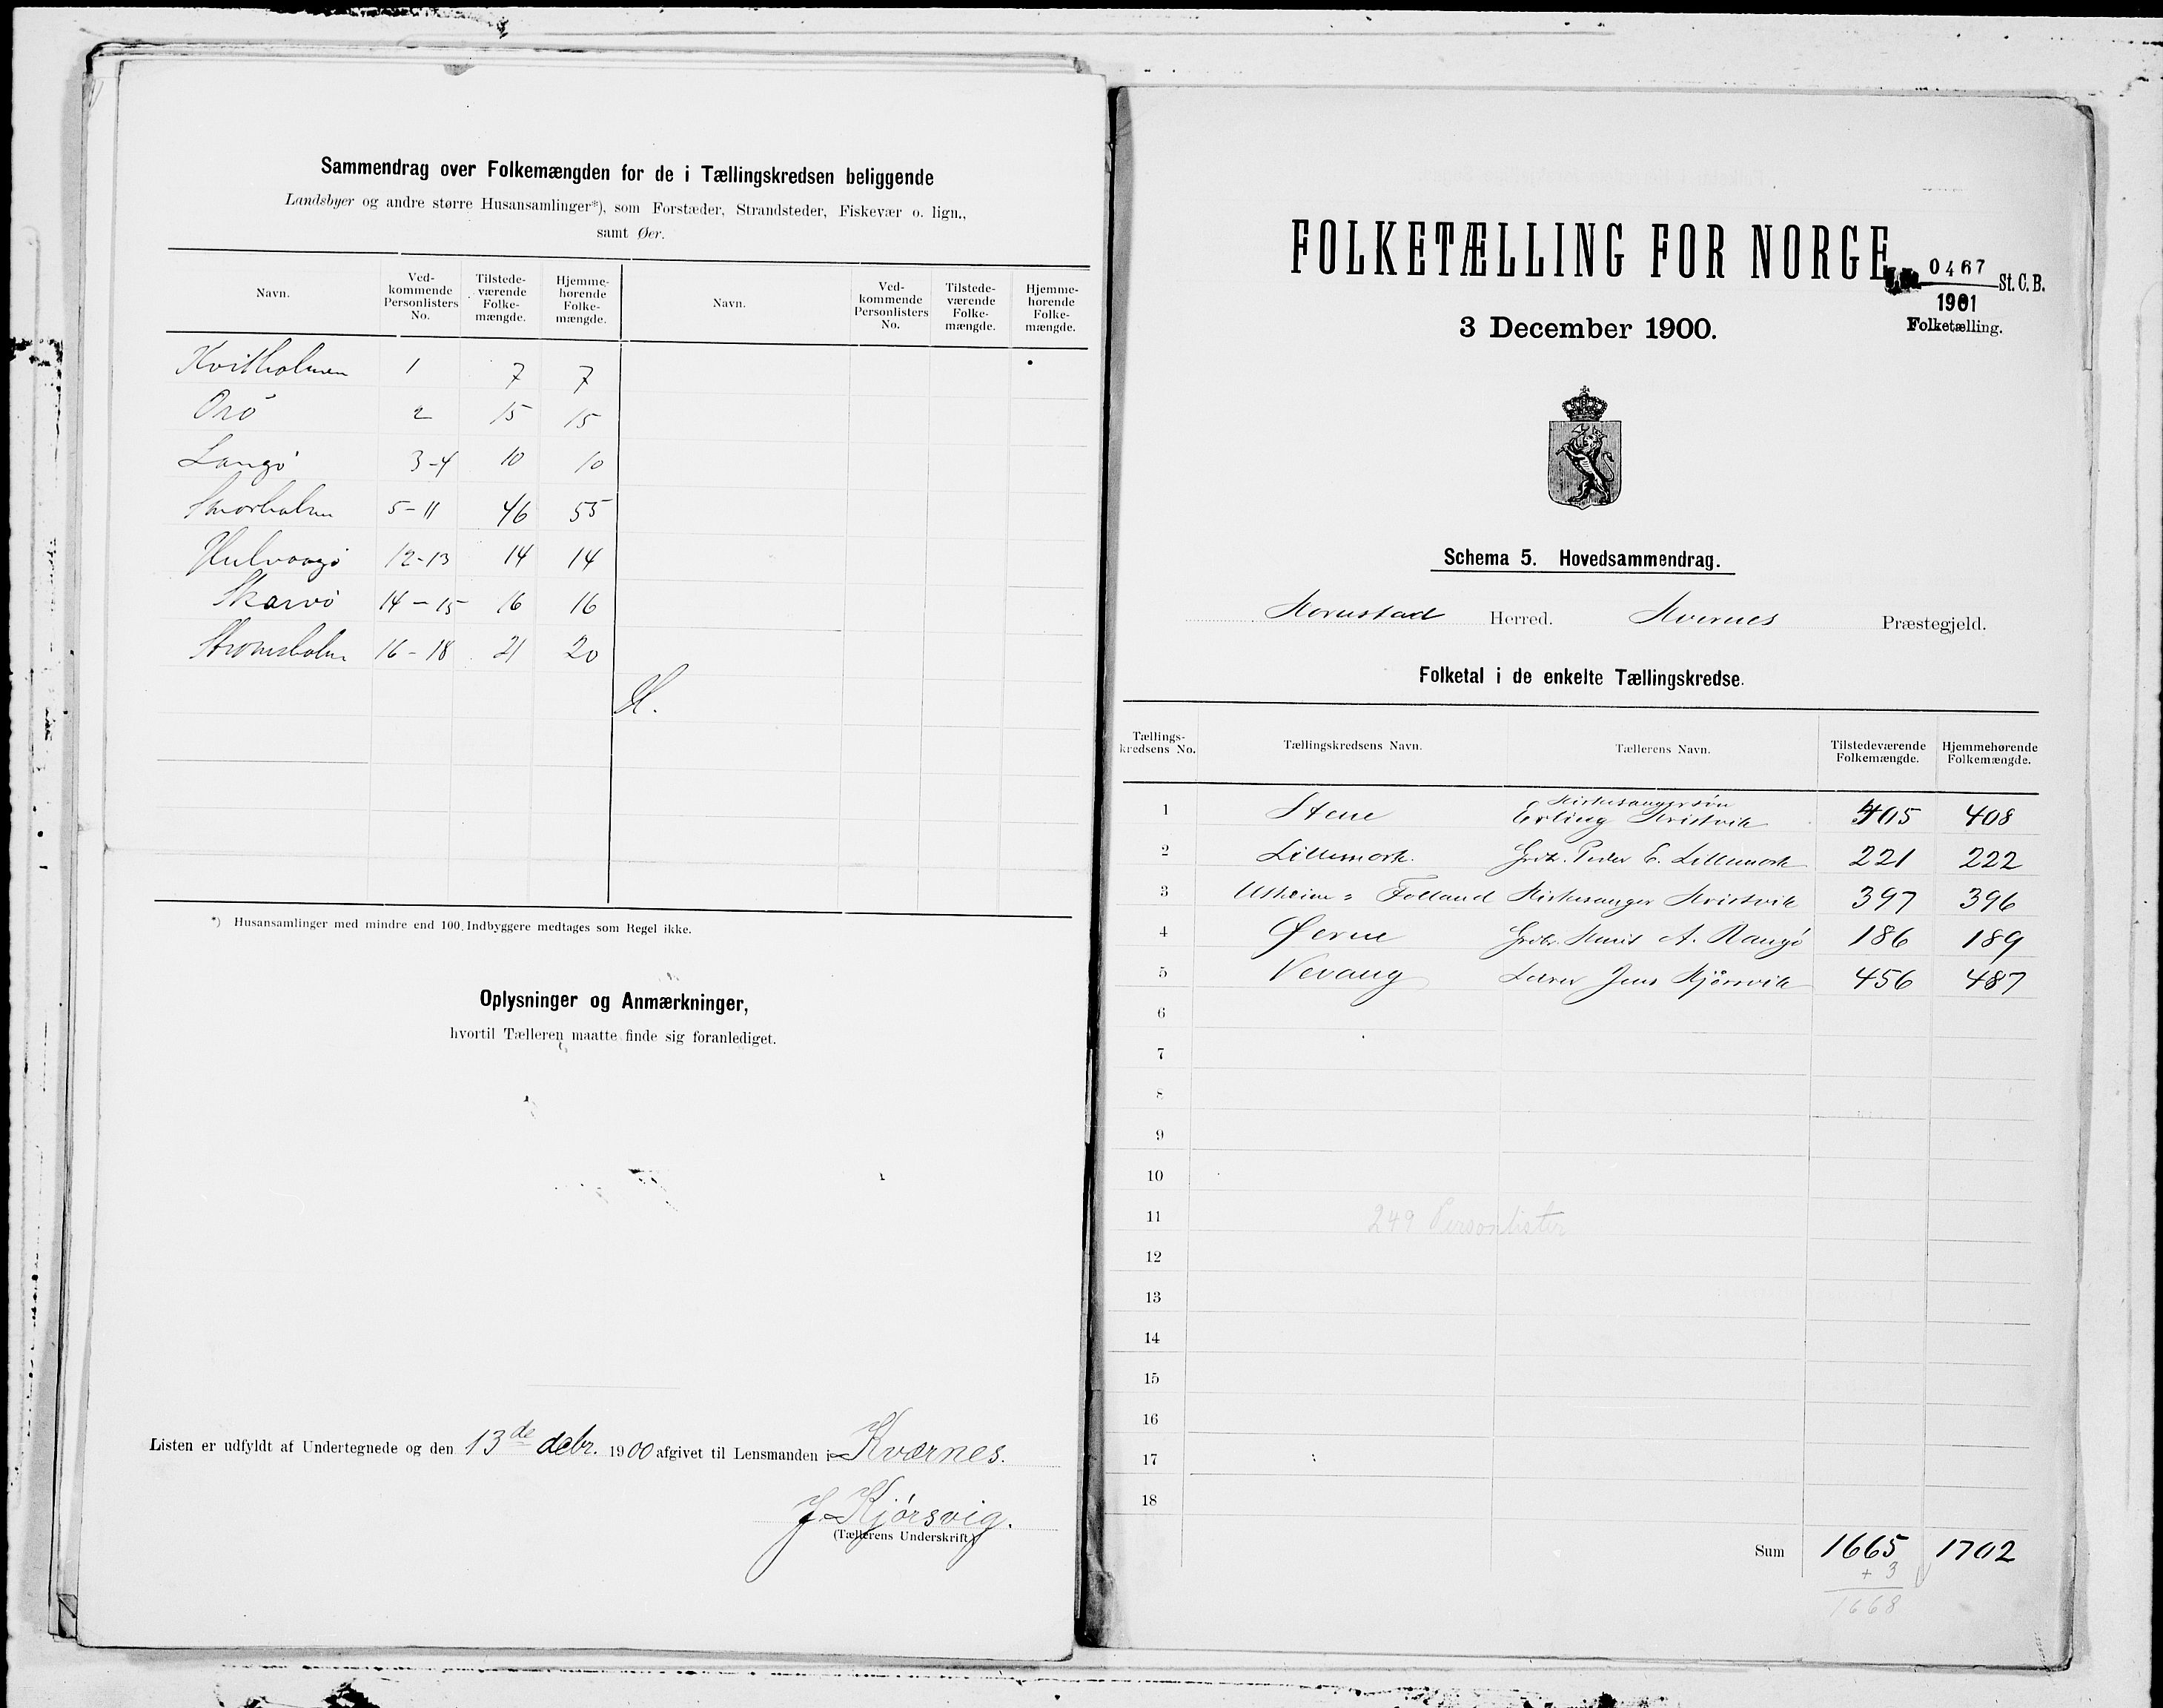 Sammendrag over Folkemængden for de i Tællingskredsen beliggende
Landsbyer og andre større Husansamlinger*), som Forstæder, Strandsteder, Fiskevær o. lign.,
samt Øer.
Navn. Ved-kommende Personlisters No. Tilstede-værende Folke-mængde. Hjemme-hørende Folke-mængde. Navn. Ved-kommende Personlisters No. Tilstede-værende Folke-mængde. Hjemme-hørende Folke-mængde.
Kvitholmen 1 7 7
Orö 2 15 15
Langö 3-4 10 10
5-11 46 55
Hulvaagö 12-13 14 14
Skarvö 14-15 16 16
Strömsholm 16-18 21 20
H.
*) Husansamlinger med mindre end 100 Indbyggere medtages som Regel ikke.
Oplysninger og Anmærkninger,
hvortil Tælleren maatte finde sig foranlediget.
Listen er udfyldt af Undertegnede og den 13de debr. 1900 afgivet til Lensmanden i Kværnes.
J. Kjörsvig.
(Tællerens Underskrift)
FOLKETÆLLING FOR NORGE
0467 St. C. B.
1901
Folketælling.
3 December 1900.
Schema 5. Hovedsammendrag.
Kornstad Herred. Kvernes Præstegjeld.
Folketal i de enkelte Tællingskredse.
Tællings-kredsens No. Tællingskredsens Navn. Tællerens Navn. Tilstedeværende Folkemængde. Hjemmehørende Folkemængde.
Kirkesangersön
1 Stene Erling Kristvik 405 408
2 Lillemork. Grdbr. Peder E. Lillemork 221 222
3 Folland Kirkesanger Kristvik 397 396
4 Øerne Grdbr. A. Rangö 186 189
5 Vevang Lærer Jens Kjörsvik 456 487
6
7
8
9
10
11
249 Personlister
12
13
14
15
16
17
18
Sum 1665 1702
+ 3
1668